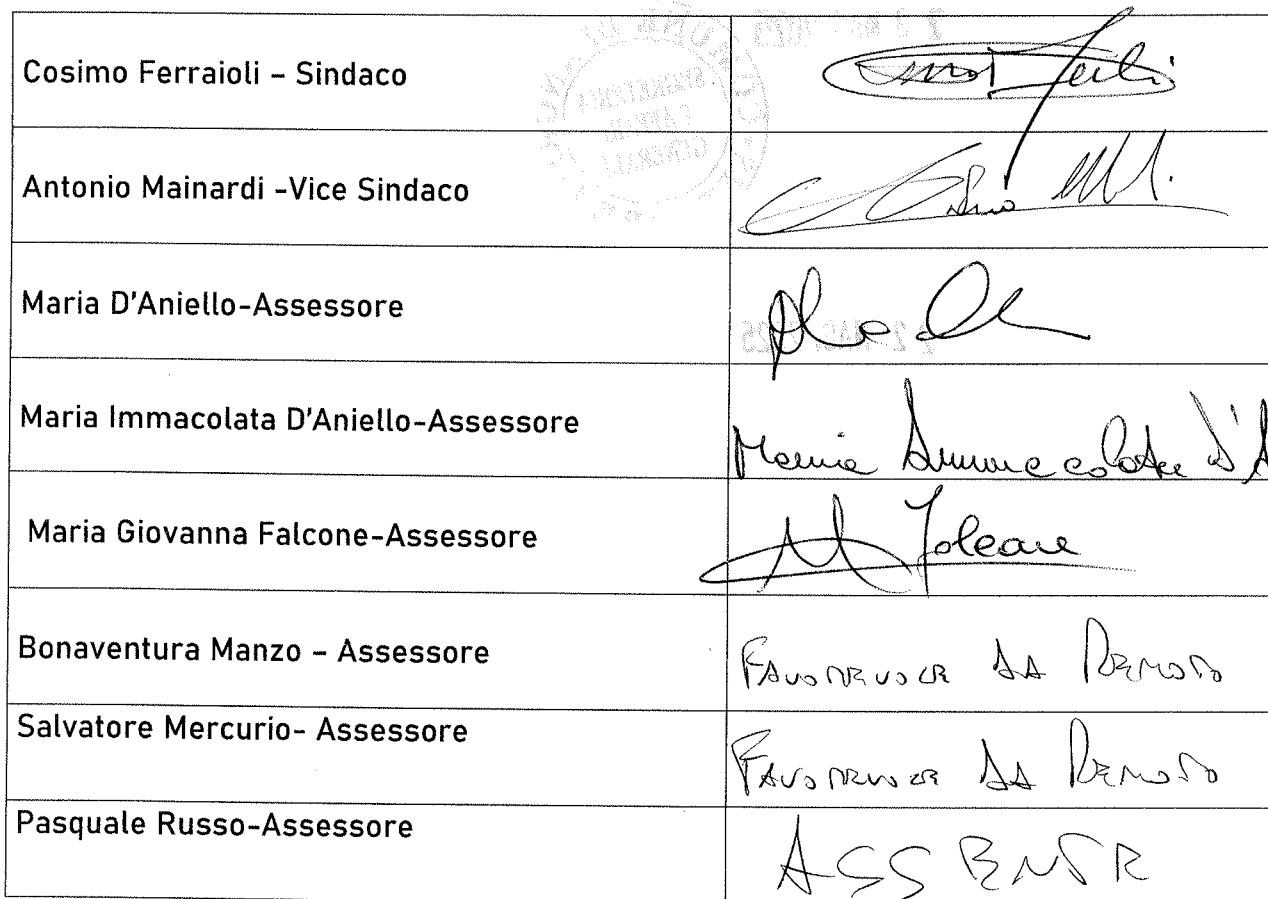 Cosimo Ferraioli – Sindaco
Antonio Mainardi -Vice Sindaco
Maria D'Aniello-Assessore
Maria Immacolata D'Aniello-Assessore
Maria Immacolata D'A
Maria Giovanna Falcone-Assessore
M Falcone
Bonaventura Manzo – Assessore
FAVOREVOLE DA REMOTO
Salvatore Mercurio- Assessore
FAVOREVOLE DA REMOTO
Pasquale Russo-Assessore
ASSENTE
SEGRETERIA
AFFARI
GENERALI